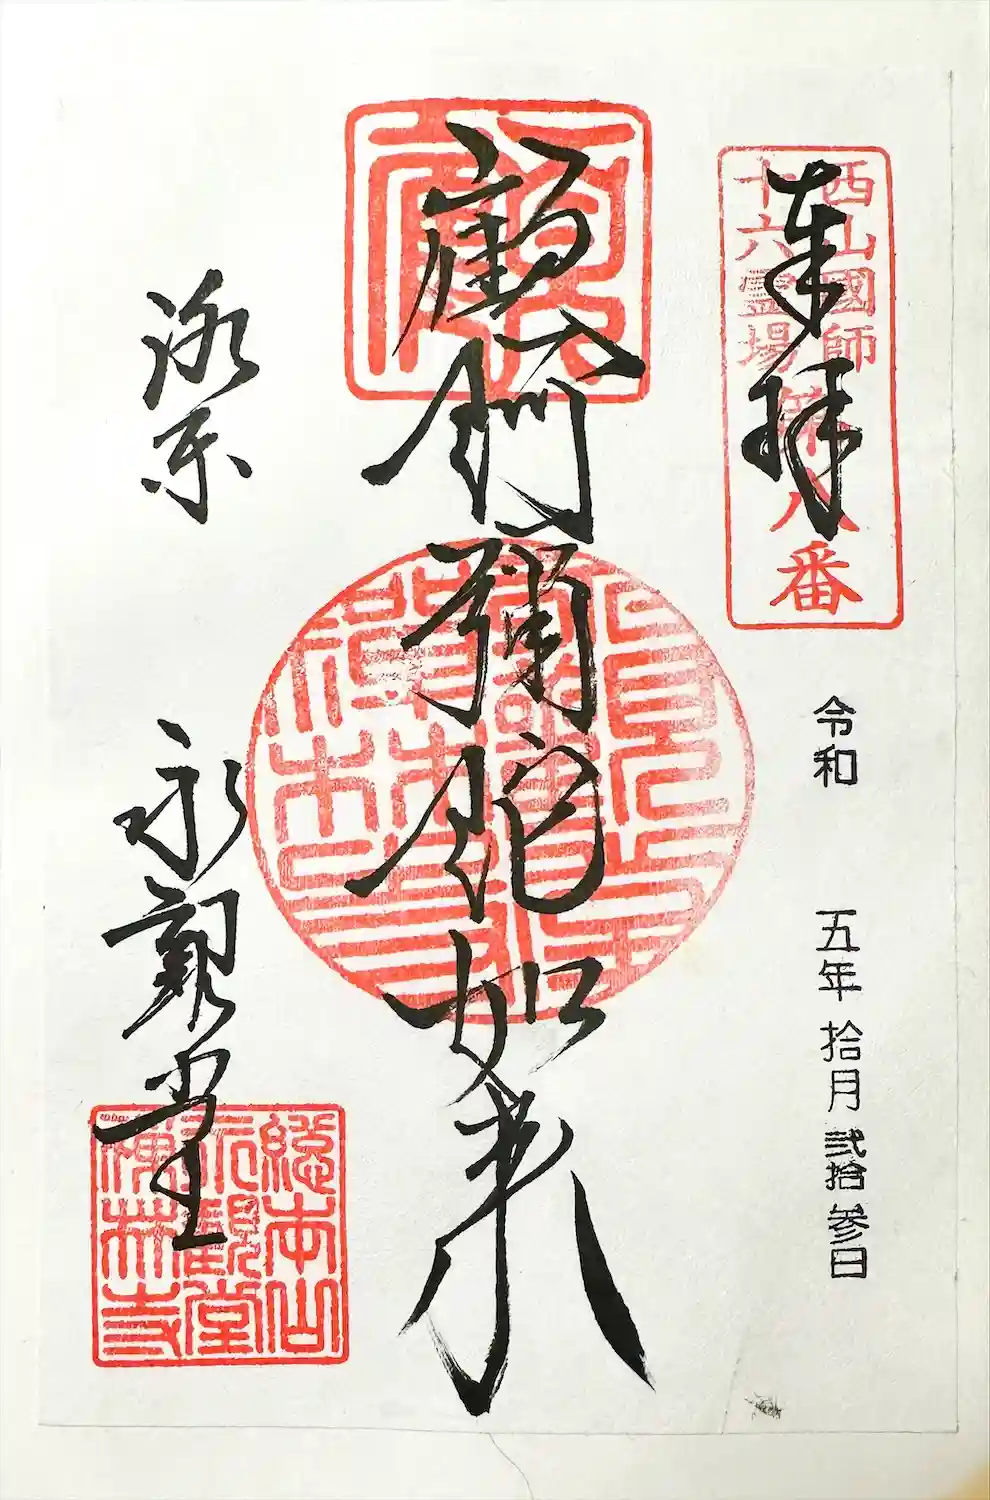 奉拝
西山國師
十六霊場
第八番
令和 五年 拾月 弐拾参日
顧阿弥陀如来
洛东
永観堂
總本山
永觀堂
禅林寺